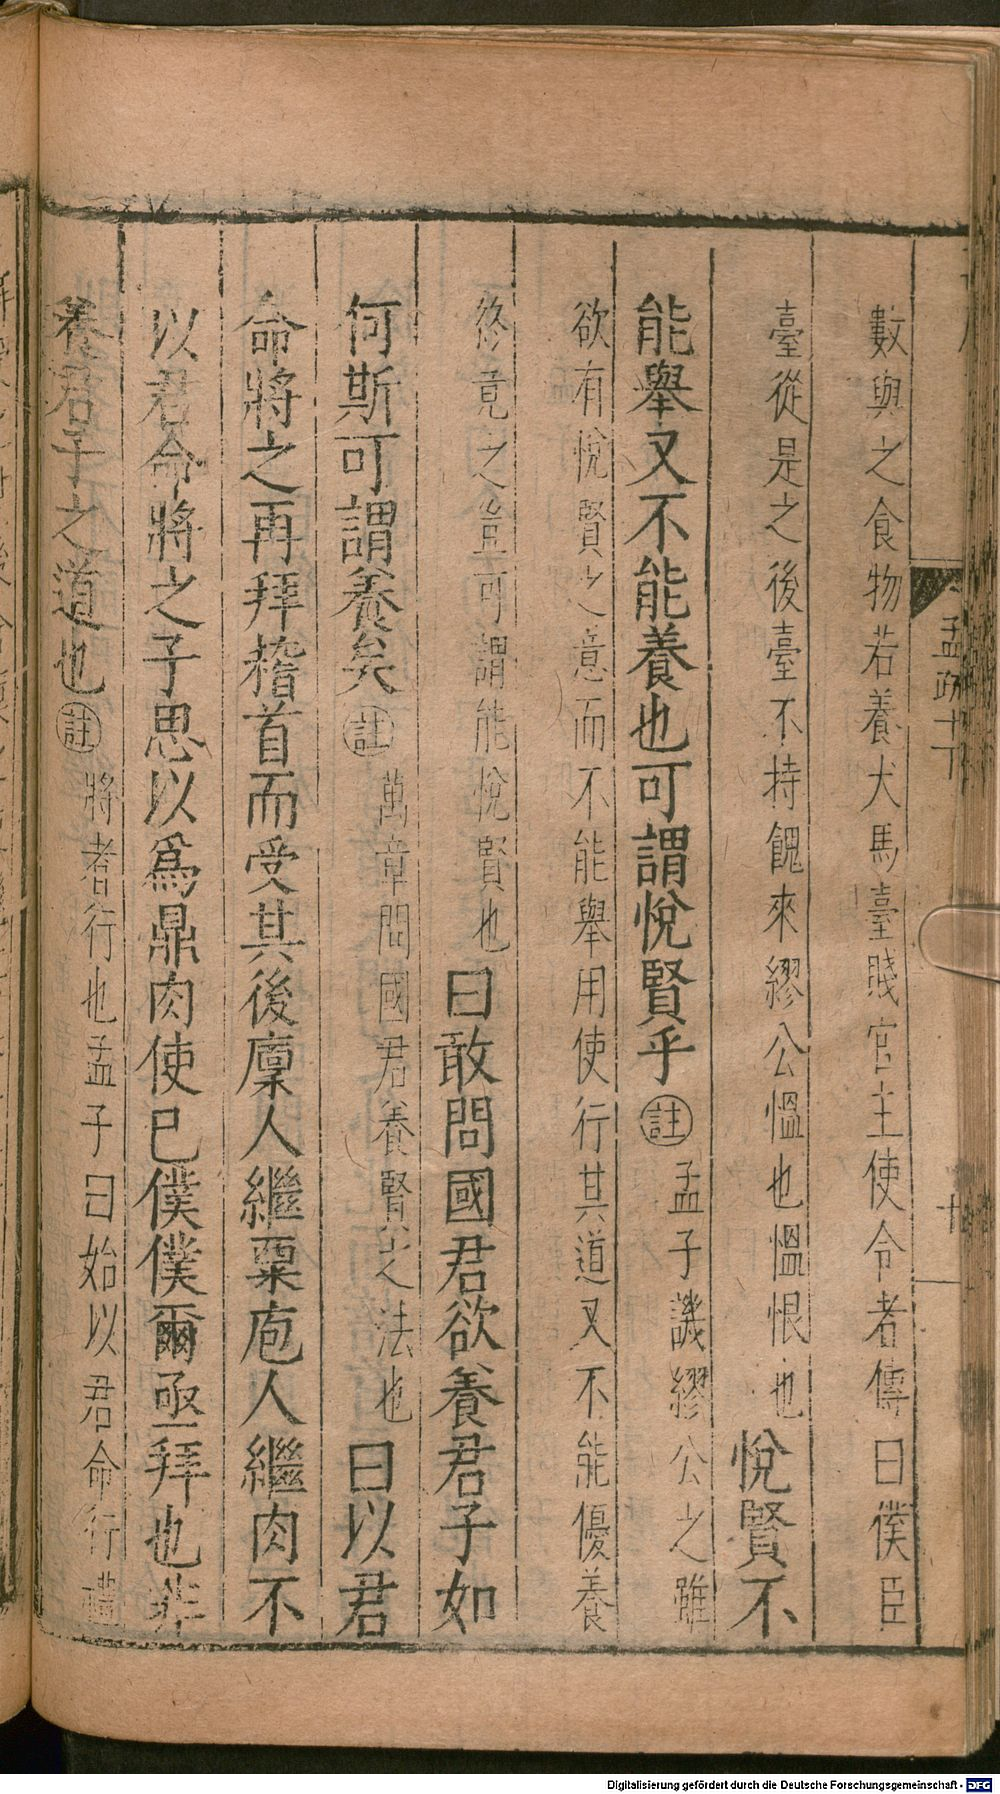 孟疏十下
十
數與之食物若養犬馬臺賤官主使令者傳曰僕臣
臺從是之後臺不持餽來繆公慍也慍恨也悅賢不
能舉又不能養也可謂悅賢乎註孟子譏繆公之雖
欲有悅賢之意而不能舉用使行其道又不能優養
終竟之豈可謂能悅賢也曰敢問國君欲養君子如
何斯可謂養矣註萬章問國君養賢之法也曰以君
命將之再拜稽首而受其後廩人繼粟庖人繼肉不
以君命將之子思以爲鼎肉使己僕僕爾亟拜也非
養君子之道也註將者行也孟子曰始以君命行禮
Digitalisierung gefördert durch die Deutsche Forschungsgemeinschaft - DFG